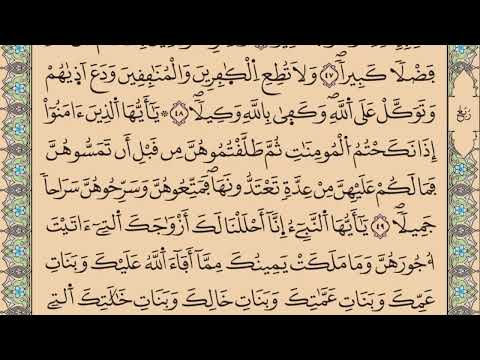 فَضْلًا كَبِيرًا ۖ ٤٧ وَلَا تُطِعِ اِ۬لْكٰ۪فِرِينَ وَالْمُنَٰفِقِينَ وَدَعَ اَذ۪يٰهُمْ
وَتَوَكَّلْ عَلَى اَ۬للَّهِ ۖ وَكَف۪يٰ بِاللَّهِ وَكِيلًا ۖ ٤٨ ۞ يَٰٓأَيُّهَا اَ۬لذِينَ ءَامَنُوٓاْ
رُبُع
إِذَا نَكَحْتُمُ اُ۬لْمُومِنَٰتِ ثُمَّ طَلَّقْتُمُوهُنَّ مِن قَبْلِ أَن تَمَسُّوهُنَّ
فَمَا لَكُمْ عَلَيْهِنَّ مِنْ عِدَّةٖ تَعْتَدُّونَهَا ۖ فَمَتِّعُوهُنَّ وَسَرِّحُوهُنَّ سَرَاحاٗ
جَمِيلًا ۖ ٤٩ يَٰٓأَيُّهَا اَ۬لنَّبِيٓءُ انَّآ أَحْلَلْنَا لَكَ أَزْوَٰجَكَ اَ۬لتِےٓ ءَاتَيْتَ
أُجُورَهُنَّ وَمَا مَلَكَتْ يَمِينُكَ مِمَّآ أَفَآءَ اَ۬للَّهُ عَلَيْكَ وَبَنَاتِ
عَمِّكَ وَبَنَاتِ عَمَّٰتِكَ وَبَنَاتِ خَالِكَ وَبَنَاتِ خَٰلَٰتِكَ اَ۬لتِے